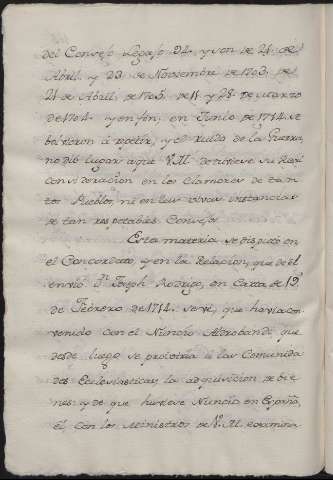 del Consejo Legajo 24. y son de 21. de
Abril y 23 de Noviembre de 1703. de
21 de Abril de 1705. de 11. y 28 de Marzo
de 1704. y en fin, en Junio de 1714. se
bolvieron á repetir, y el ruido de la Guerra,
no dió lugar aque V.M. detuviese su Real
consideracion en los Clamores de tan-
tos Pueblos, ni en las vivas instancias
de tan respetable Consejo.
Esta materia se disputó en
el Concordato, y en la Relacion, que de él
envió Dn. Joseph Rodrigo, en Carta de 19
de Febrero de 1714. se vé, que havia con-
venido con el Nuncio Aldrobandi que
desde luego se prohiviria á las Comunida
des Eclesiasticas la adquisicion de bie-
nes: y de que huviese Nuncio en España,
él, con los Ministros de V.M. examina